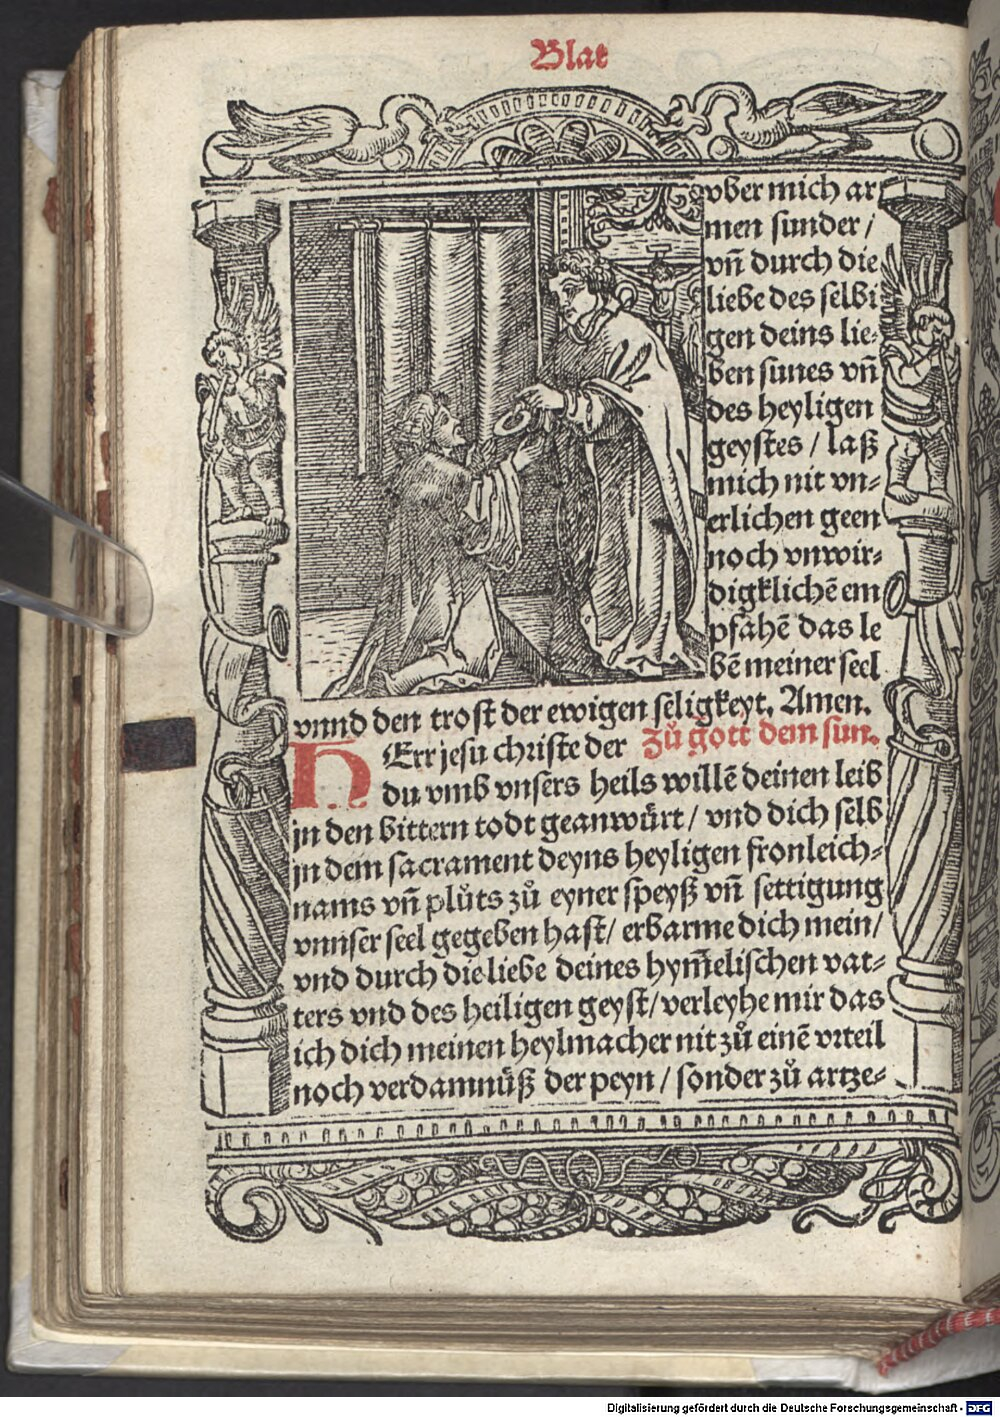 Blat
vber mich ar
men sunder /
vn̄ durch die
liebe des selbi
gen deins lie⸗
ben sunes vn̄
des heyligen
geystes / laß
mich nit vn⸗
erlichen geen
noch vnwir⸗
digklichē em
pfahē das le
bē meiner seel
vnnd den trost der ewigen seligkeyt. Amen.
zů gott dem sun.
HErr jesu christe der
du vmb vnsers heils willē deinen leib
in den bittern todt geanwürt / vnd dich selb
in dem sacrament deyns heyligen fronleich⸗
nams vn̄ plůts zů eyner speyß vn̄ settigung
vnnser seel gegeben hast / erbarme dich mein /
vnd durch die liebe deines hym̄elischen vat⸗
ters vnd des heiligen geyst / verleyhe mir das
ich dich meinen heylmacher nit zů einē vrteil
noch verdamnüß der peyn / sonder zů artze⸗
Digitalisierung gefördert durch die Deutsche Forschungsgemeinschaft - DFG